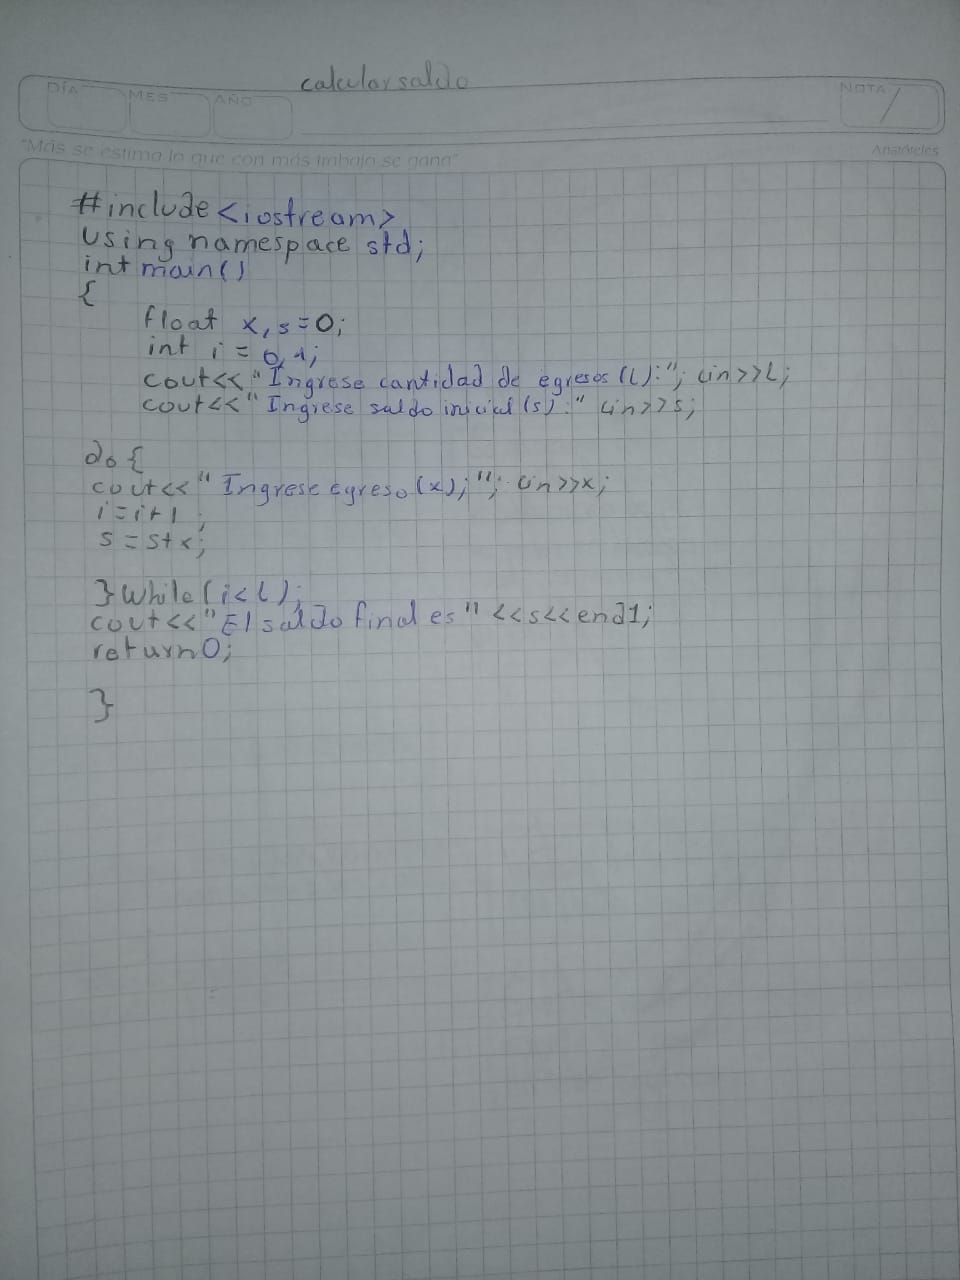 calcular saldo
DÍA MES AÑO NOTA
"Más se estima lo que con más trabajo se gana" Aristóteles
#include <iostream>
using namespace std;
int main()
{
float x, s=0;
int i = 0, 1;
cout<<"Ingrese cantidad de egresos (L):"; cin>>L;
cout<<"Ingrese saldo inicial (s):" cin>>s;
do {
cout<<"Ingrese egreso (x);"; cin>>x;
i=i+1;
s=s+x;
} while (i<L);
cout<<"El saldo final es"<<s<<end1;
return 0;
}